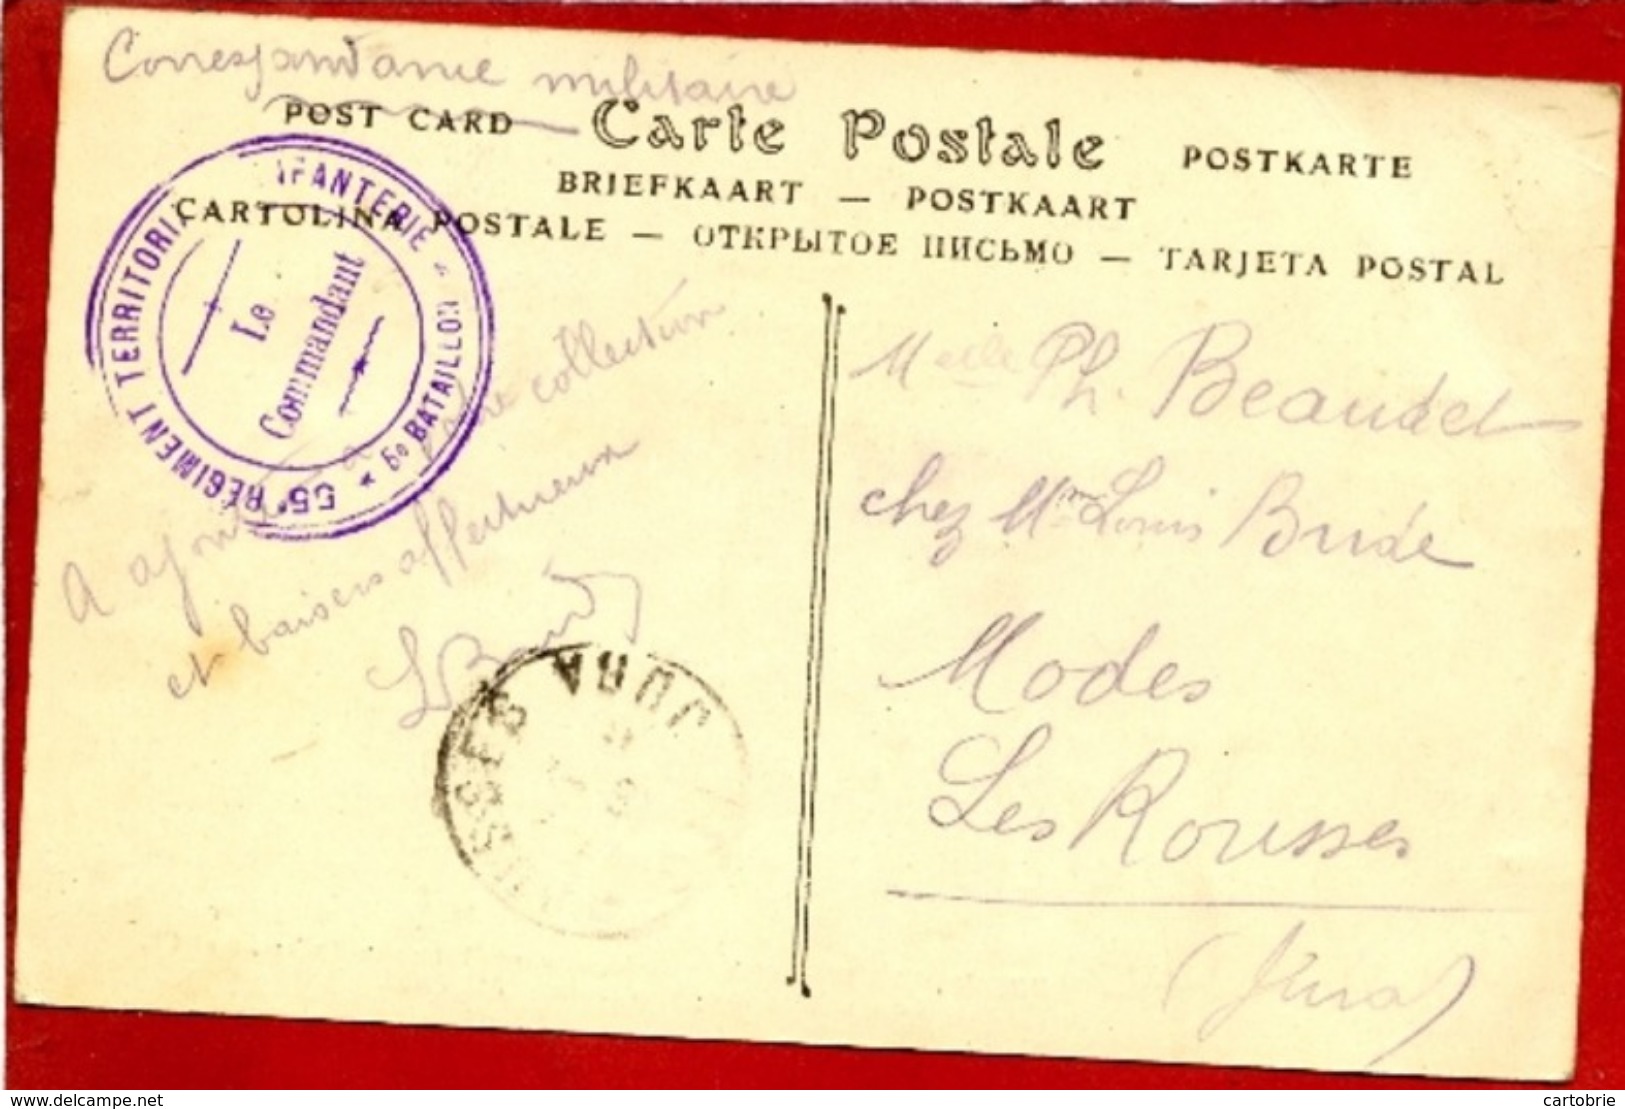 Correspondance militaire
POST CARD Carte Postale POSTKARTE
BRIEFKAART — POSTKAART
CARTOLINA POSTALE — ОТКРЫТОЕ ПИСЬМО — TARJETA POSTAL
55e RÉGIMENT TERRITORIAL INFANTERIE
5e BATAILLON
Le
Commandant
A ajouter à collection
et baisers affectueux
JURA
Melle Ph. Beaudet
chez Mme Louis
Modes
Les Rousses
(Jura)
www.delcampe.net
cartobrie